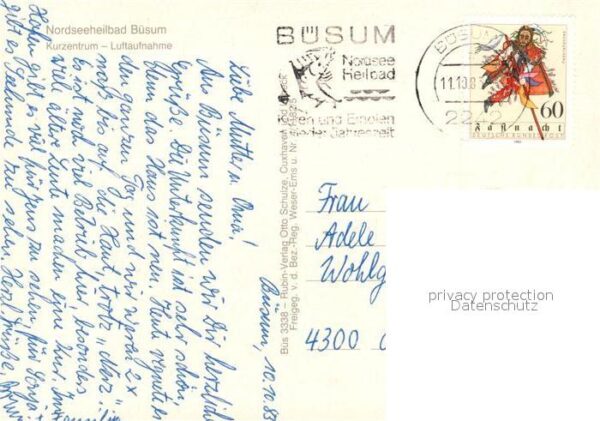 Nordseeheilbad Büsum
Kurzentrum – Luftaufnahme
BÜSUM
Nordsee
Heilbad
Kuren und Erholen
zu jeder Jahreszeit
BÜSUM
11.10.8
2242
60
Fastnacht
DEUTSCHE BUNDESPOST
Büs 3338 – Rubin-Verlag Otto Schulze, Cuxhaven
Freigeg. v. d. Bez.-Reg. Weser-Ems u. Nr.
Büsum, 10.10.83
Liebe Mutter u. Oma!
Aus Büsum senden wir Dir herzliche
Grüße. Die Unterkunft ist sehr schön,
denn das Haus ist neu. Heute regnete es
den ganzen Tag und wir 2x
naß bis auf die Haut, trotz „Nerz".
Es ist noch viel Betrieb hier, besonders
viele ältere Leute machen eine Kur. Im
Hafen gibt es viel für uns zu sehen, für
gibt es Seehunde zu sehen. Herzl. Grüße,
Frau
Adele
Wohlg
4300
privacy protection
Datenschutz